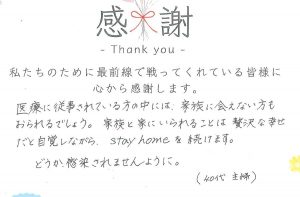 感謝
- Thank you -
私たちのために最前線で戦ってくれている皆様に
心から感謝します。
医療に従事されている方の中には、家族に会えない方も
おられるでしょう。家族と家にいられることは贅沢な幸せ
だと自覚しながら、stay homeを続けます。
どうか感染されませんように。
(40代 主婦)